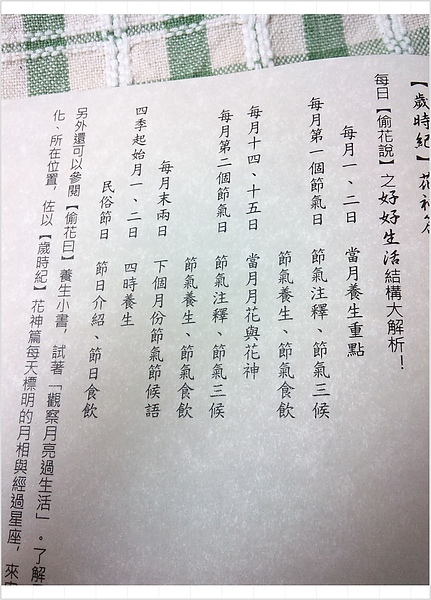 【歲時紀】花神篇
每日【偷花說】之好好生活結構大解析！
每月一、二日 當月養生重點
每月第一個節氣日 節氣注釋、節氣三候
節氣養生、節氣食飲
每月十四、十五日 當月月花與花神
每月第二個節氣日 節氣注釋、節氣三候
節氣養生、節氣食飲
每月末兩日 下個月份節氣節候語
四季起始月一、二日 四時養生
民俗節日 節日介紹、節日食飲
另外還可以參閱【偷花曰】養生小書，試著「觀察月亮過生活」。了解
化、所在位置，佐以【歲時紀】花神篇每天標明的月相與經過星座，來